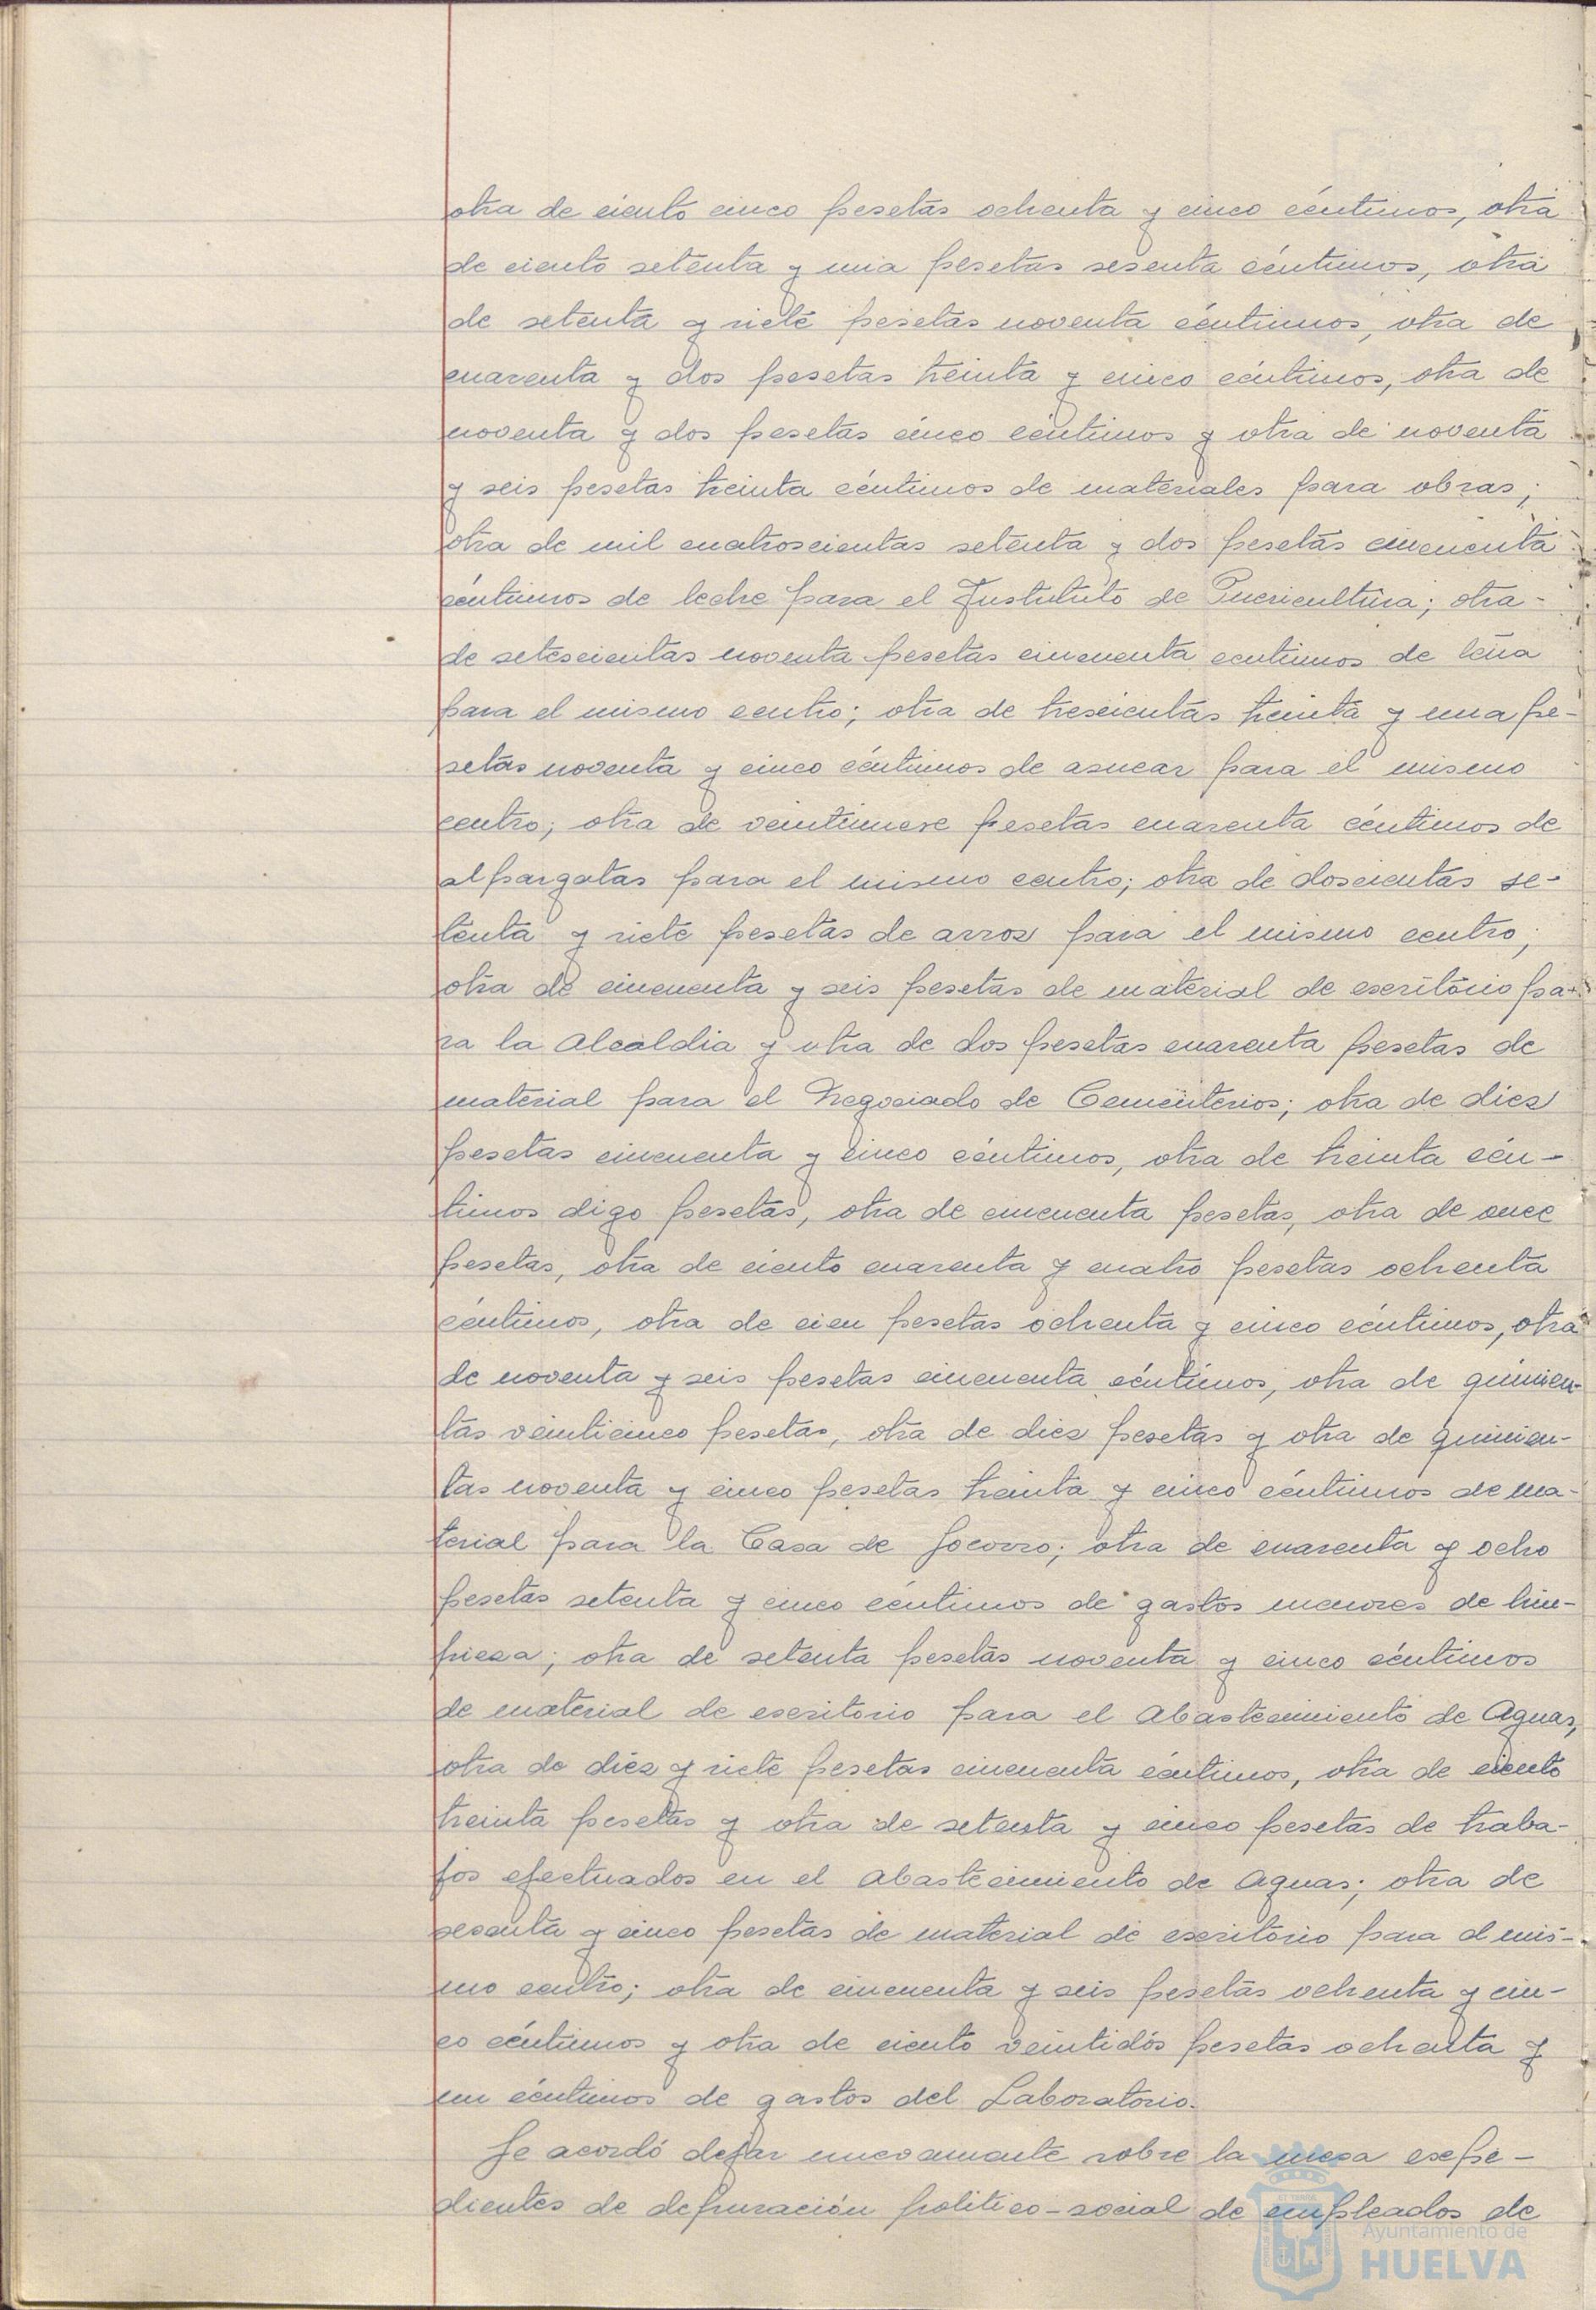 otra de ciento cinco pesetas ochenta y cinco céntimos, otra
de ciento setenta y una pesetas sesenta céntimos, otra
de setenta y siete pesetas noventa céntimos, otra de
cuarenta y dos pesetas treinta y cinco céntimos, otra de
noventa y dos pesetas cinco céntimos y otra de noventa
y seis pesetas treinta céntimos de materiales para obras;
otra de mil cuatroscientas setenta y dos pesetas cincuenta
céntimos de leche para el Instituto de Puericultura; otra-
de setescientas noventa pesetas cincuenta centimos de leña
para el mismo centro; otra de trescientas treinta y una pe-
setas noventa y cinco céntimos de asucar para el mismo
centro; otra de veintinueve pesetas cuarenta céntimos de
alpargatas para el mismo centro; otra de doscientas se-
tenta y siete pesetas de arroz para el mismo centro;
otra de cincuenta y seis pesetas de material de escritorio pa-
ra la Alcaldia y otra de dos pesetas cuarenta pesetas de
material para el Negociado de Cementerios; otra de diez
pesetas cincuenta y cinco céntimos, otra de treinta cén-
timos digo pesetas, otra de cincuenta pesetas, otra de once
pesetas, otra de ciento cuarenta y cuatro pesetas ochenta
céntimos, otra de cien pesetas ochenta y cinco céntimos, otra
de noventa y seis pesetas cincuenta céntimos, otra de quinien-
tas veinticinco pesetas, otra de diez pesetas y otra de quinien-
tas noventa y cinco pesetas treinta y cinco céntimos de ma-
terial para la Casa de Socorro; otra de cuarenta y ocho
pesetas setenta y cinco centimos de gastos menores de lim-
pieza; otra de setenta pesetas noventa y cinco céntimos
de material de escritorio para el Abastecimiento de Aguas,
otra de diez y siete pesetas cincuenta céntimos, otra de ciento
treinta pesetas y otra de setenta y cinco pesetas de traba-
jos efectuados en el Abastecimiento de Aguas; otra de
sesenta y cinco pesetas de material de escritorio para el mis-
mo centro; otra de cincuenta y seis pesetas ochenta y cin-
co céntimos y otra de ciento veintidós pesetas ochenta y
un céntimos de gastos del Laboratorio.
Se acordó dejar nuevamente sobre la mesa expe-
dientes de depuración politico-social de empleados de
Ayuntamiento de
HUELVA